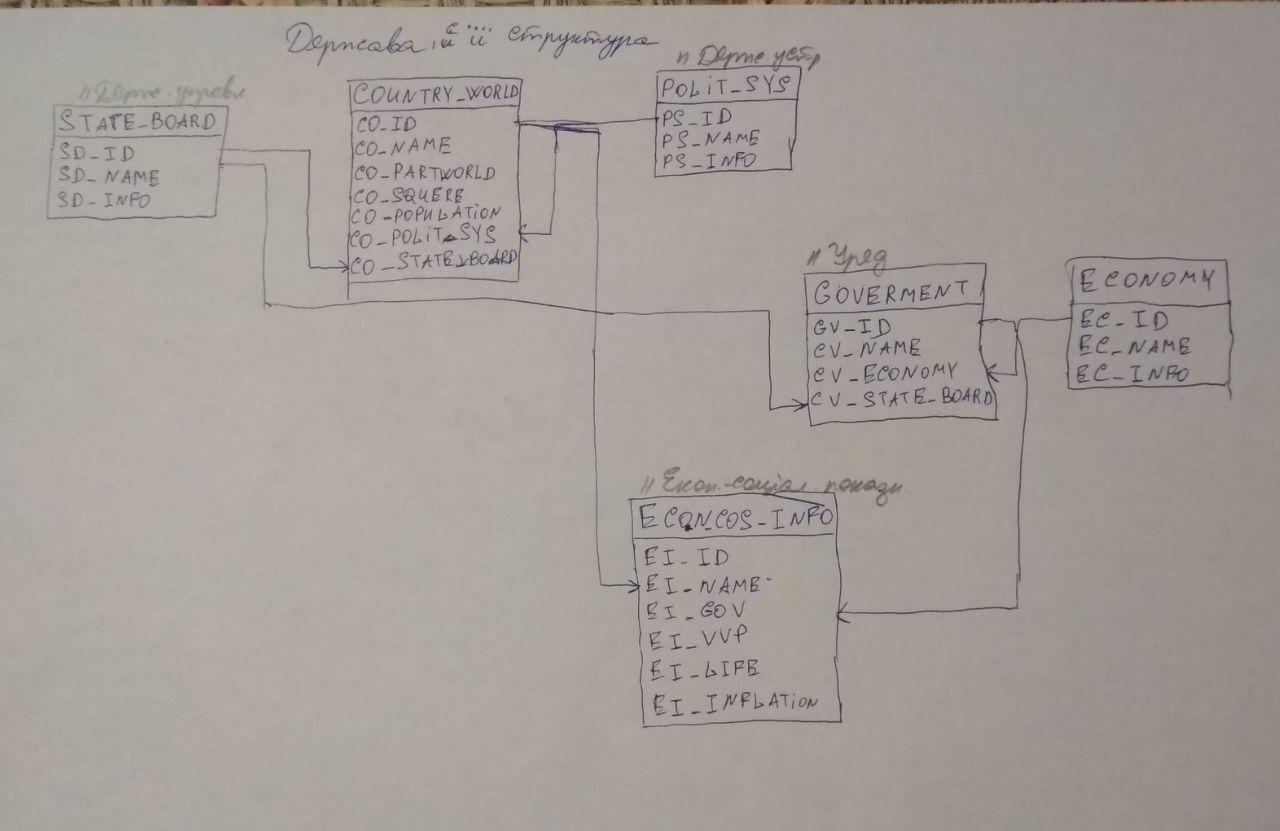 Держава, й її структура
// Держ. управл
STATE_BOARD
SD_ID
SD_NAME
SD_INFO
COUNTRY_WORLD
CO_ID
CO_NAME
CO_PARTWORLD
CO_SQUERE
CO_POPULATION
CO_POLIT_SYS
CO_STATE_BOARD
// Держ. устр
POLIT_SYS
PS_ID
PS_NAME
PS_INFO
// Уряд
GOVERMENT
GV_ID
GV_NAME
GV_ECONOMY
GV_STATE_BOARD
ECONOMY
EC_ID
EC_NAME
EC_INFO
// Екон.-соціал. показн.
ECON_COS_INFO
EI_ID
EI_NAME
EI_GOV
EI_VVP
EI_LIFE
EI_INFLATION